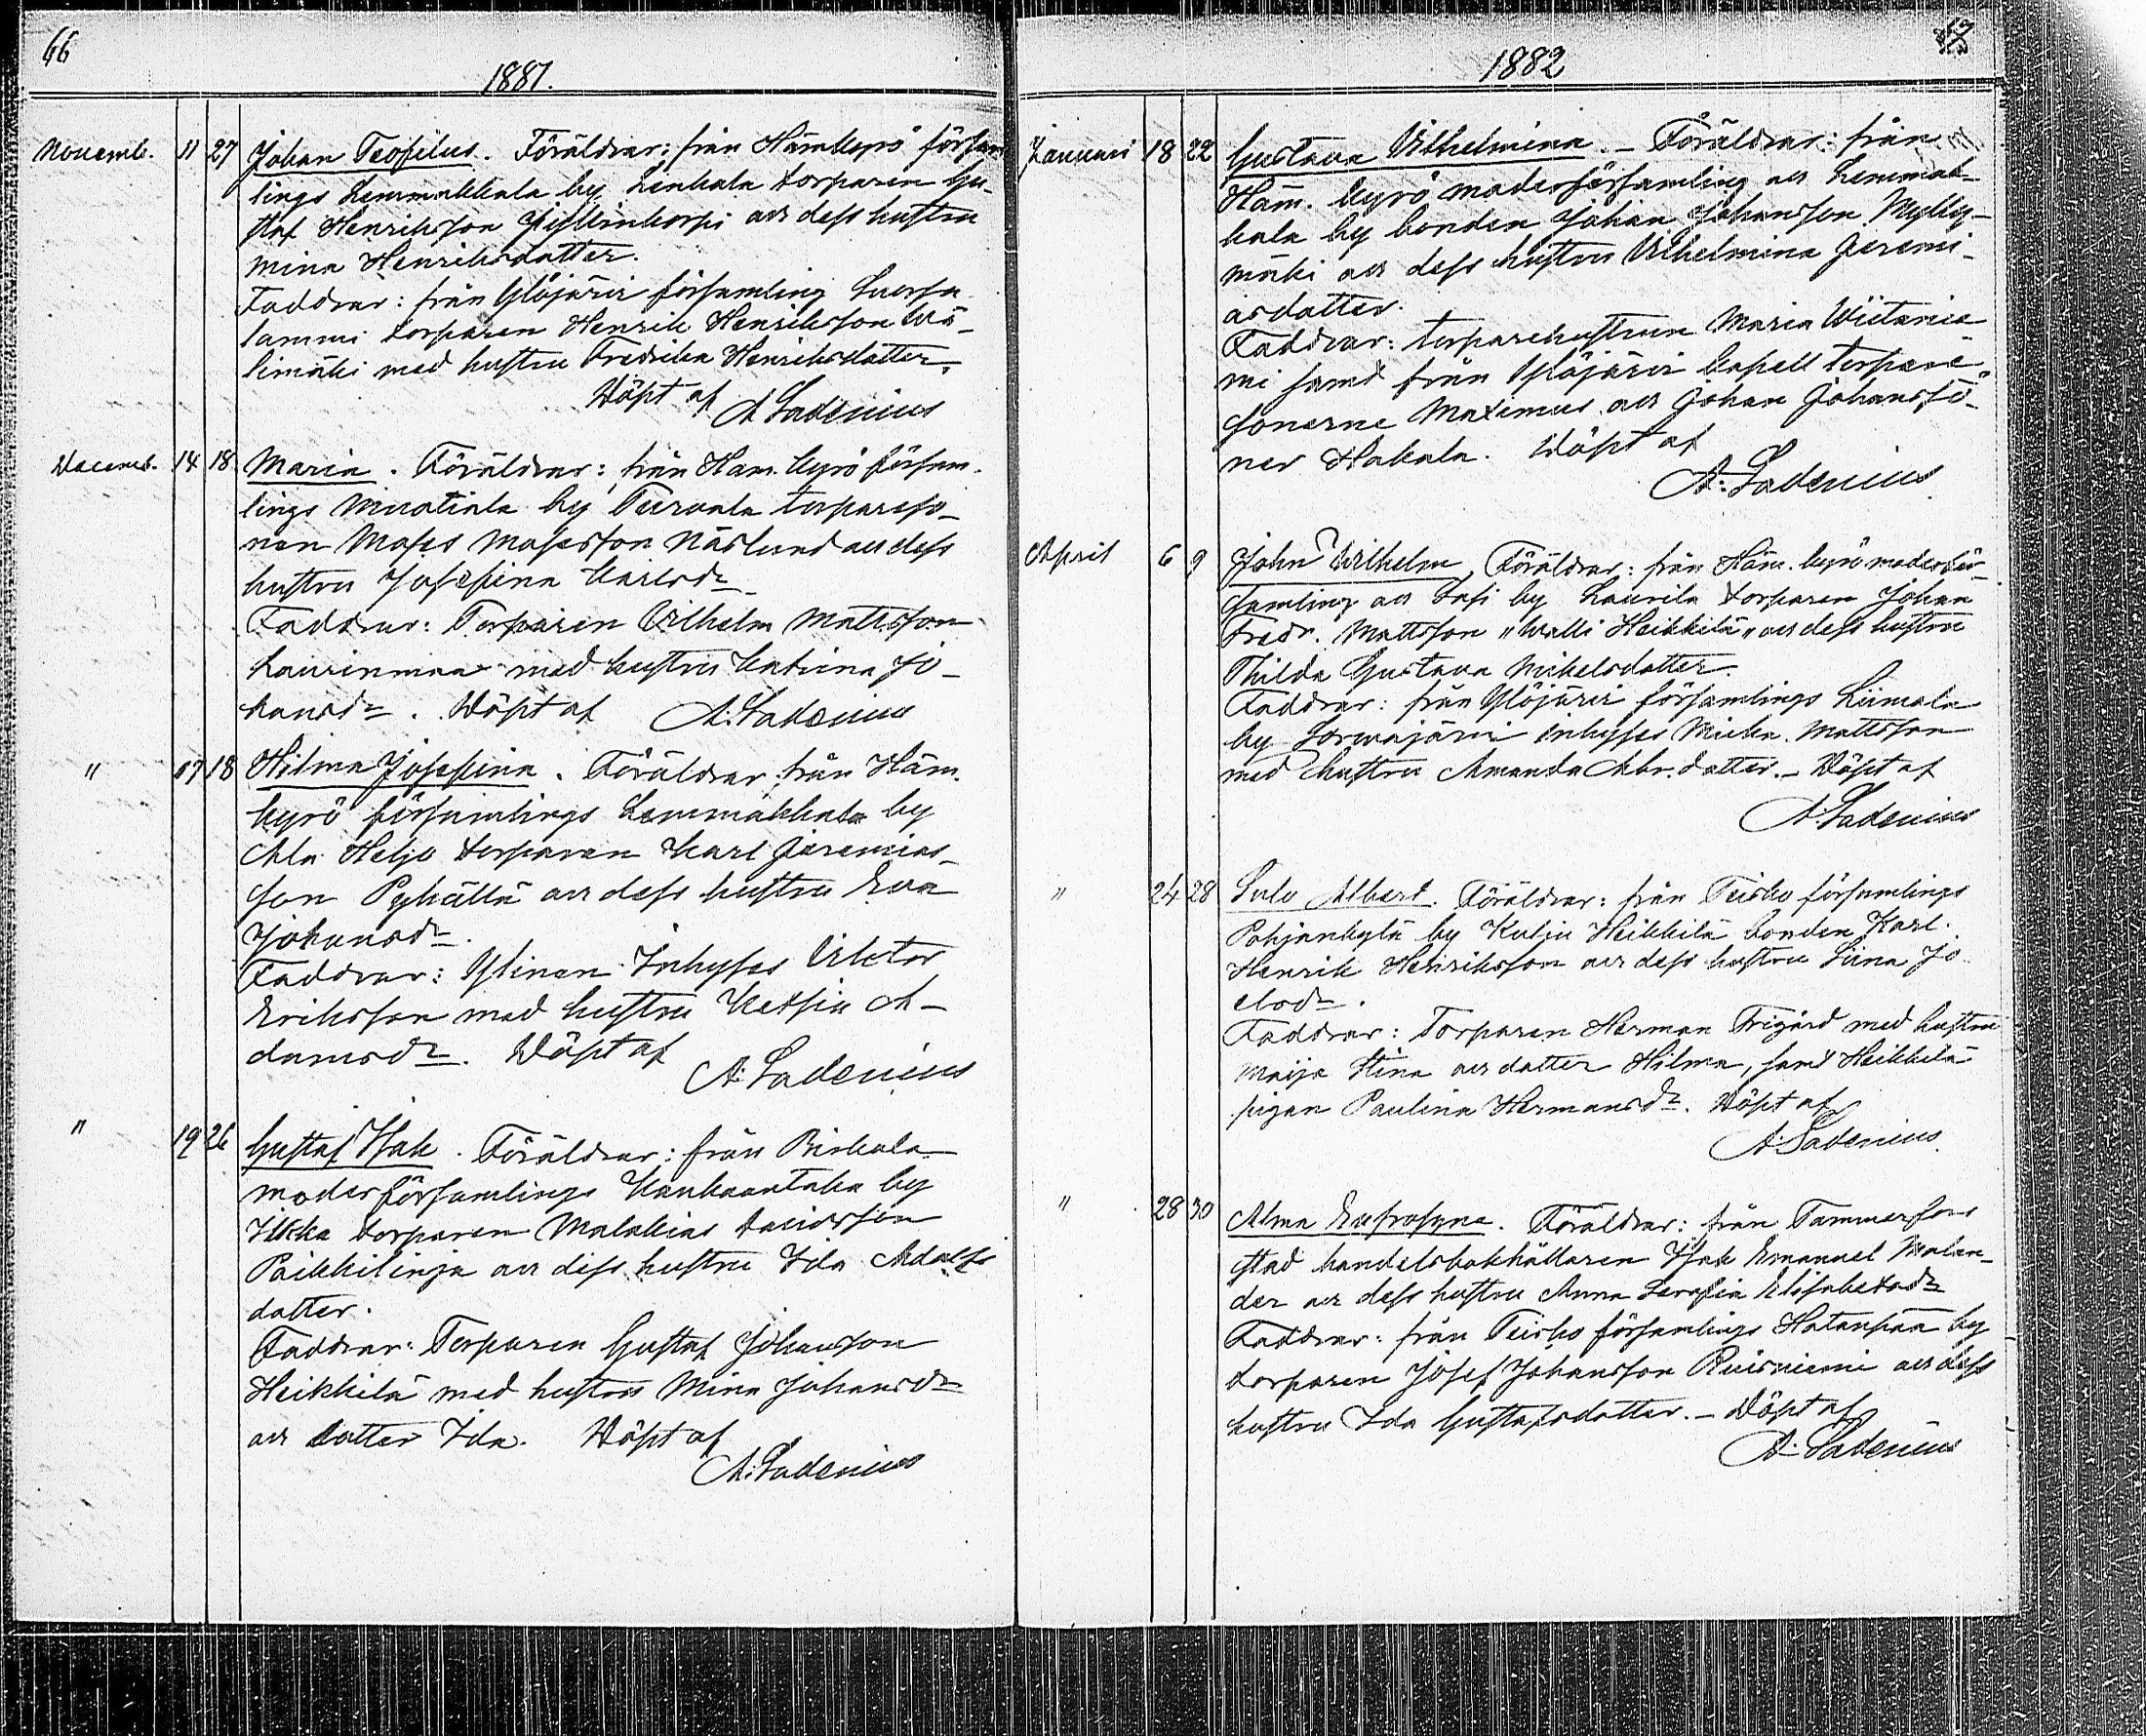 66
1881.
Novemb. 11 27 Johan Teofilus. Föräldrar: från Hämkyrö försam
lings Lemmakkala by Lenkala torparen Gu-
staf Henriksson och dess hustru
Mina Henriksdotter.
Faddrar: från Ylöjärvi församling
lammi torparen Henrik Henriksson Wä-
limäki med hustru Fredrika Henriksdotter.
Döpt af A Ladenius
Decemb. 14 18 Maria. Föräldrar: från Ham. kyrö försam.
lings Miuatiala by Tervala torpareso-
nen Moses Mosesson Näslund och dess
hustru Josefina Karlsdr
Faddrar: Torparen Vilhelm Mattsson
Laurinmaa med hustru Katrina Jo-
hansdr. Döpt af A. Ladenius
" 17 18 Hilma Josefina. Föräldrar: från Häm.
kyrö församlings Lemmakkala by
Ala Heljo torparen Karl Jeremias-
son Pyhältä och dess hustru Eva
Johansdr.
Faddrar: Ylinen Inhyses Viktor
Eriksson med hustru Ketsia A-
damsdr. Döpt af
A. Ladenius
" 19 26 Gustaf Isak. Föräldrar: från Birkala
moderförsamlings Kankaantaka by
Ilkka torparen Malakias Davidsson
Paikkilinja och dess hustru Ida Adolfs
dotter.
Faddrar: Torparen Gustaf Johansson
Heikkilä med hustru Mina Johansdr
och dotter Ida. Döpt af
A. Ladenius
1882
Januari 18 22 Gustava Vilhelmina. - Föräldrar: från
Häm. kyrö moderförsamling och Lemmak-
kala by bonden Johan Johansson Mylly-
mäki och dess hustru Vilhelmina Jeremi-
asdotter.
Faddrar: torparehustrun Maria Wiitanie
mi samt från Ylöjärvi kapell torpare-
sonerne Maximus och Johan Johanssö-
ner Hakala. Döpt af
A. Ladenius
April 6 9 John Vilhelm. Föräldrar: från Häm. kyrö moderför-
samling och Sasi by Laurila torparen Johan
Fredr. Mattsson "Walli Heikkilä" och dess hustru
Thilda Gustava Mikelsdotter.
Faddrar: från Ylöjärvi församlings Liimola
by Sorvajärvi inhyses Micka. Mattsson
med hustru Amanda Abr. dotter. - Döpt af
A. Ladenius
" 24 28 Sulo Albert. Föräldrar: från Teisko församlings
Pohjankylä by Kulju Heikkilä bonden Karl.
Henrik Henriksson och dess hustru Liina Jo
elsdr.
Faddrar: Torparen Herman Frigård med hustru
Maija Stina och dotter Hilma, samt Heikkilä
pigan Paulina Hermansdr. Döpt af
A. Ladenius.
" 28 30 Alma Eufrosyne. Föräldrar: från Tammerfors
stad handelsbokhållaren Isak Emanuel Malan-
der och dess hustru Anna Serafia Elisabetsdr
Faddrar: från Teisko församlings Hatanpää by
torparen Josef Johansson Ruisniemi och dess
hustru Ida Gustafsdotter. - Döpt af
A. Ladenius